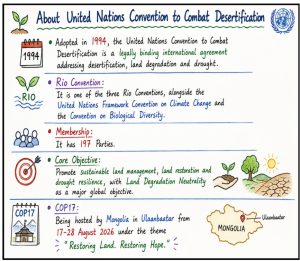 About United Nations Convention to Combat Desertification
OCT
1994
Adopted in 1994, the United Nations Convention to Combat
Desertification is a legally binding international agreement
addressing desertification, land degradation and drought.
RIO
Rio Convention:
It is one of the three Rio Conventions, alongside the
United Nations Framework Convention on Climate Change and
the Convention on Biological Diversity.
Membership:
It has 197 Parties.
Core Objective:
Promote sustainable land management, land restoration and
drought resilience, with Land Degradation Neutrality
as a major global objective.
COP17
COP17:
Being hosted by Mongolia in Ulaanbaatar from
17-28 August 2026 under the theme
"Restoring Land. Restoring Hope."
Ulaanbaatar
MONGOLIA